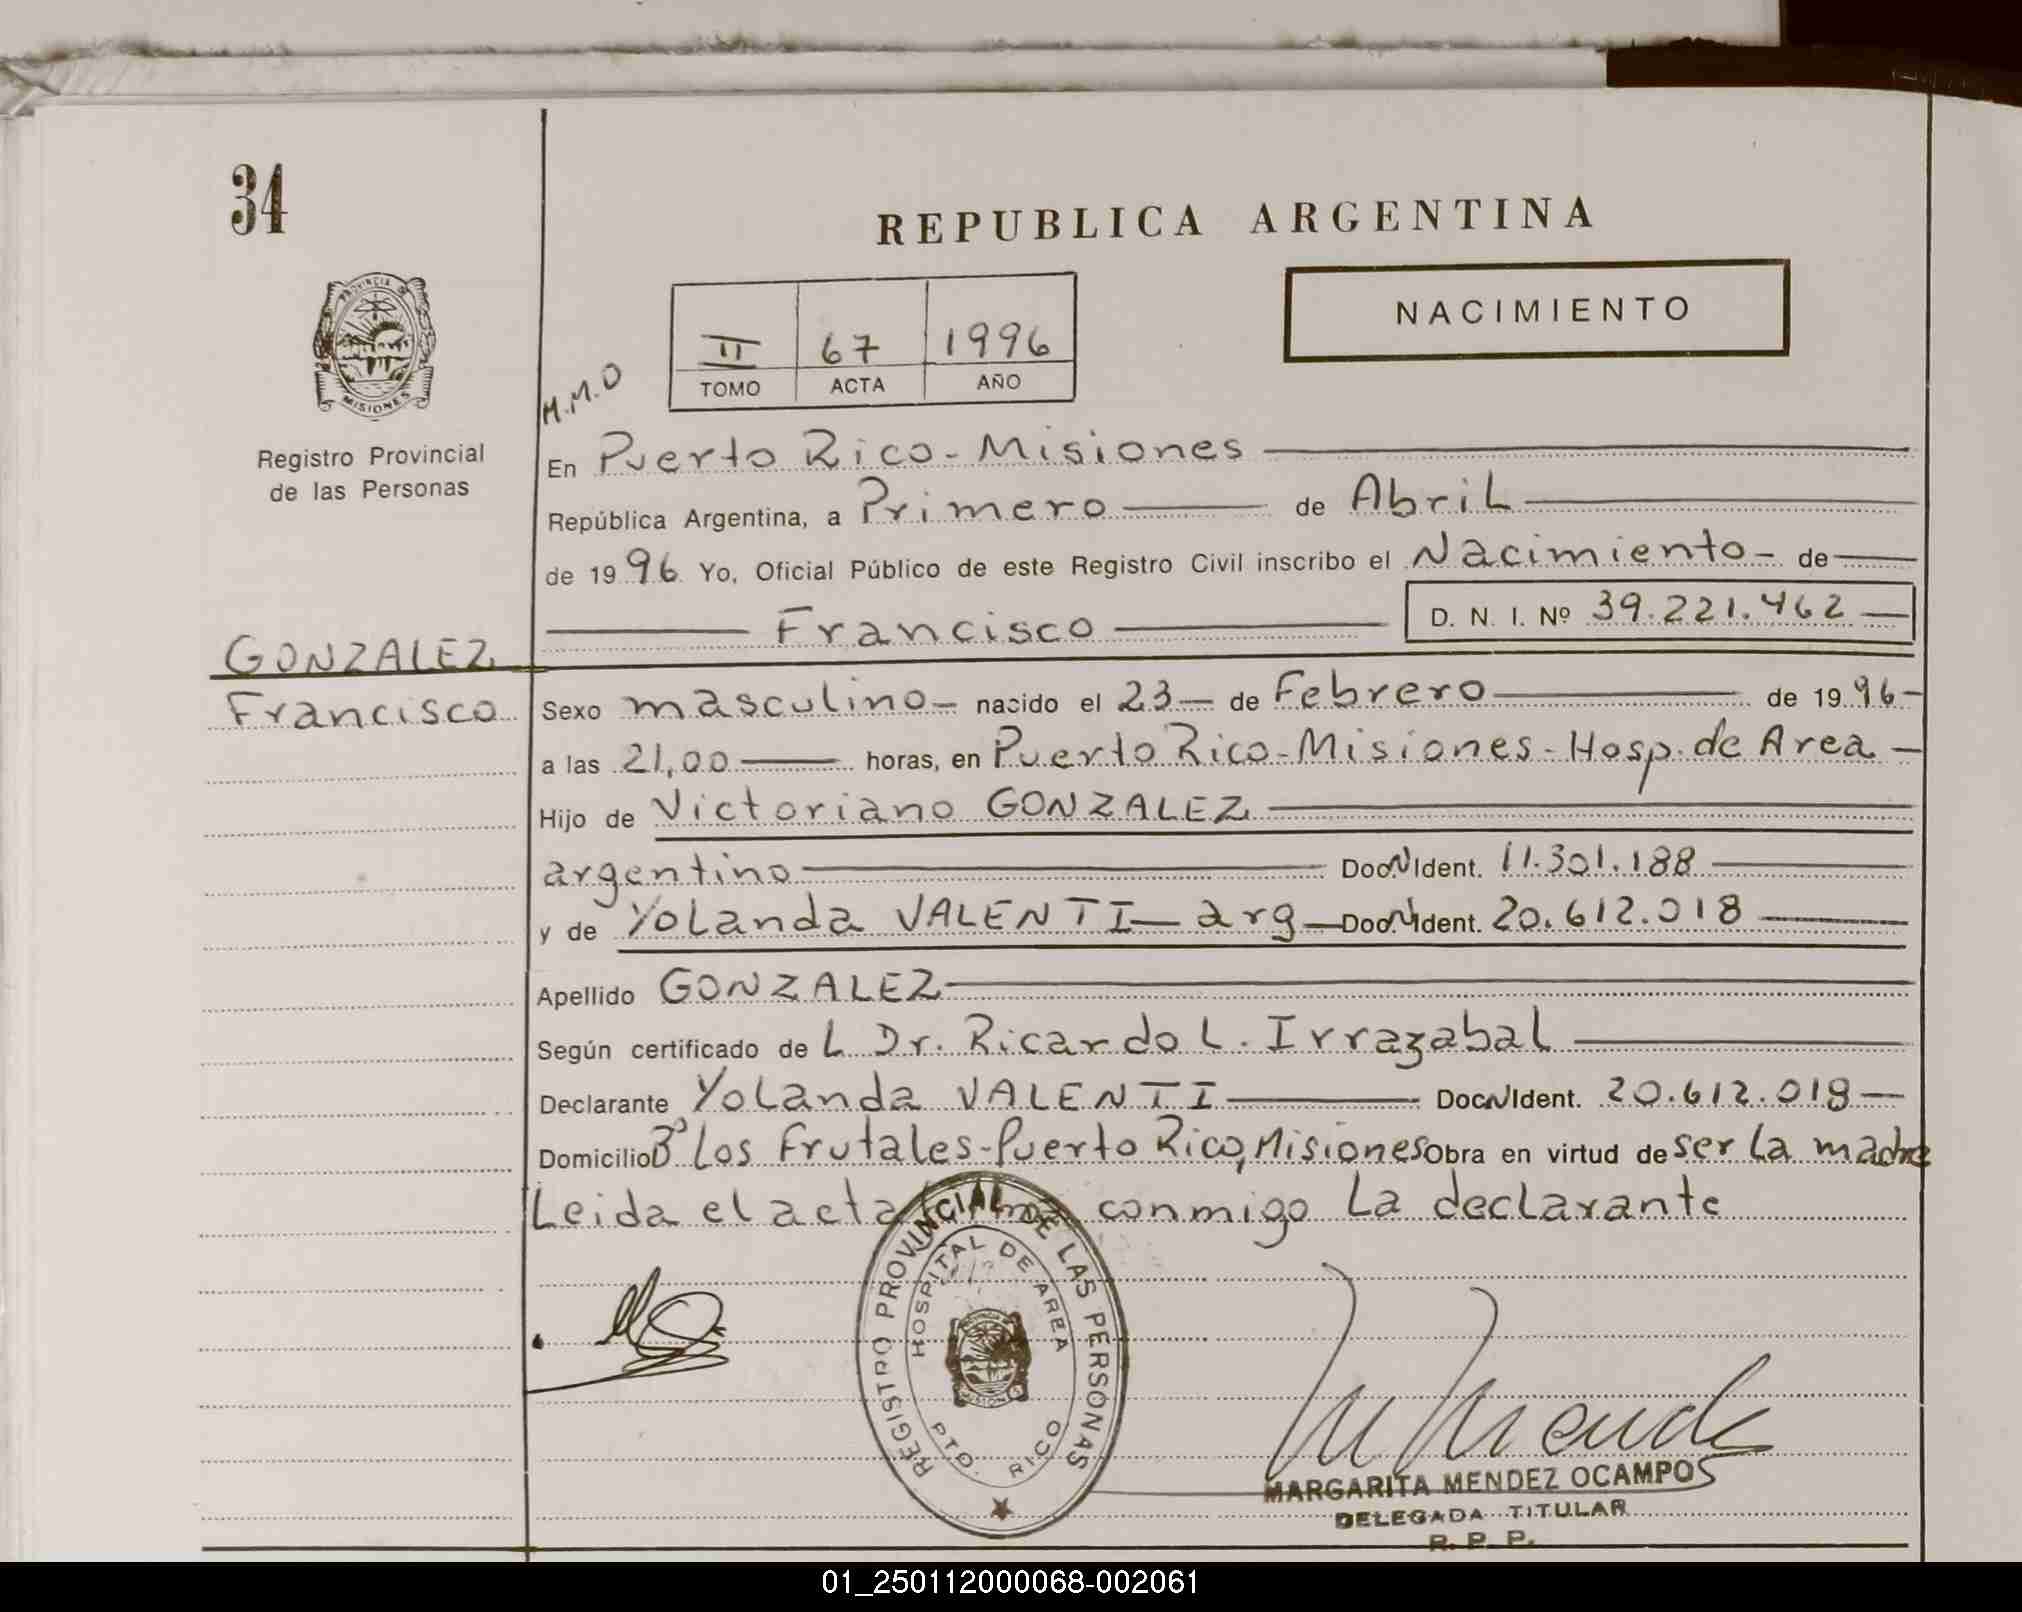 34
REPUBLICA ARGENTINA
NACIMIENTO
PROVINCIA DE
MISIONES
II 67 1996
TOMO ACTA AÑO
M.M.O
Registro Provincial
de las Personas
En Puerto Rico - Misiones
República Argentina, a Primero de Abril
de 1996 Yo, Oficial Público de este Registro Civil inscribo el Nacimiento - de
Francisco D. N. I. Nº 39.221.462
GONZALEZ
Francisco
Sexo masculino - nacido el 23 - de Febrero de 1996 -
a las 21,00 horas, en Puerto Rico - Misiones - Hosp. de Area -
Hijo de Victoriano GONZALEZ
argentino Doc.N.Ident. 11.301.188
y de Yolanda VALENTI - arg - Doc.N.Ident. 20.612.018
Apellido GONZALEZ
Según certificado de L Dr. Ricardo L. Irrazabal
Declarante Yolanda VALENTI Doc.N.Ident. 20.612.018 -
Domicilio Bº Los Frutales - Puerto Rico, Misiones Obra en virtud de ser la madre
Leida el acta conmigo La declarante
REGISTRO PROVINCIAL DE LAS PERSONAS
HOSPITAL DE AREA
PTO. RICO
MARGARITA MENDEZ OCAMPOS
DELEGADA TITULAR
R. P. P.
01_250112000068-002061